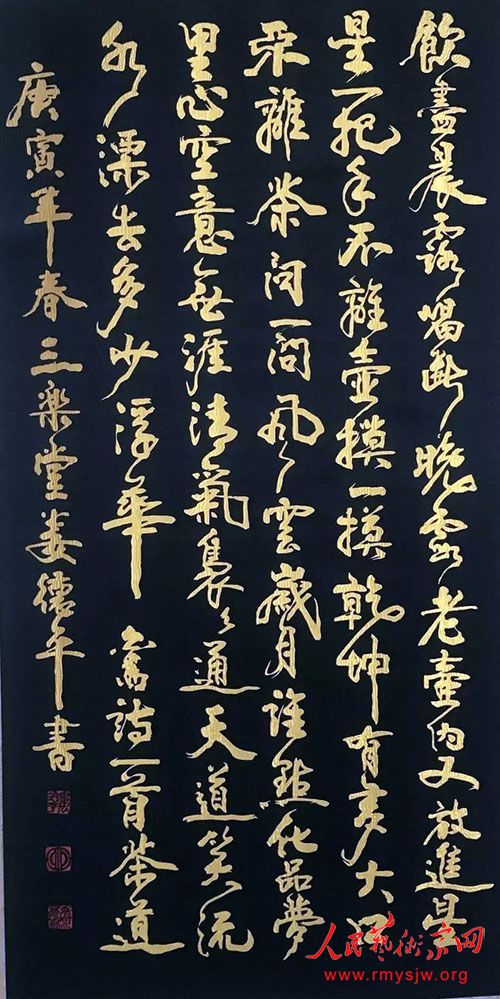 飲盡晨露喝斷晚霞老壺内又放進星
星一把手不離壺摸一摸乾坤有多大口
不離茶問一問風雲歲月誰點化品夢
里心空意無涯清氣裊々通天道笑流
水漂去多少浮華 舊詩一首茶道
庚寅年春三楽堂婁德平書
人民藝術家网
www.rmysjw.org